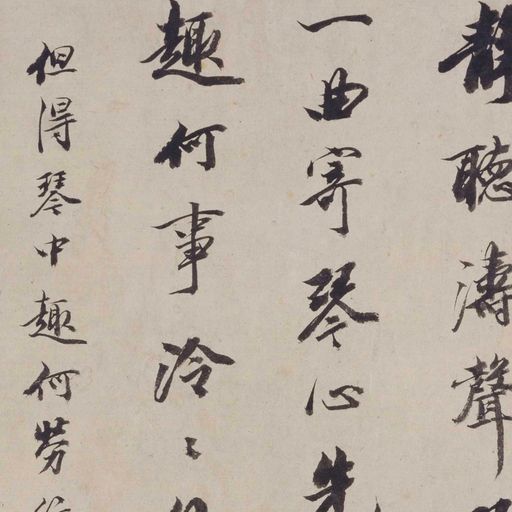 靜聽濤聲
一曲寄琴心先
趣何事泠〻
但得琴中趣何勞